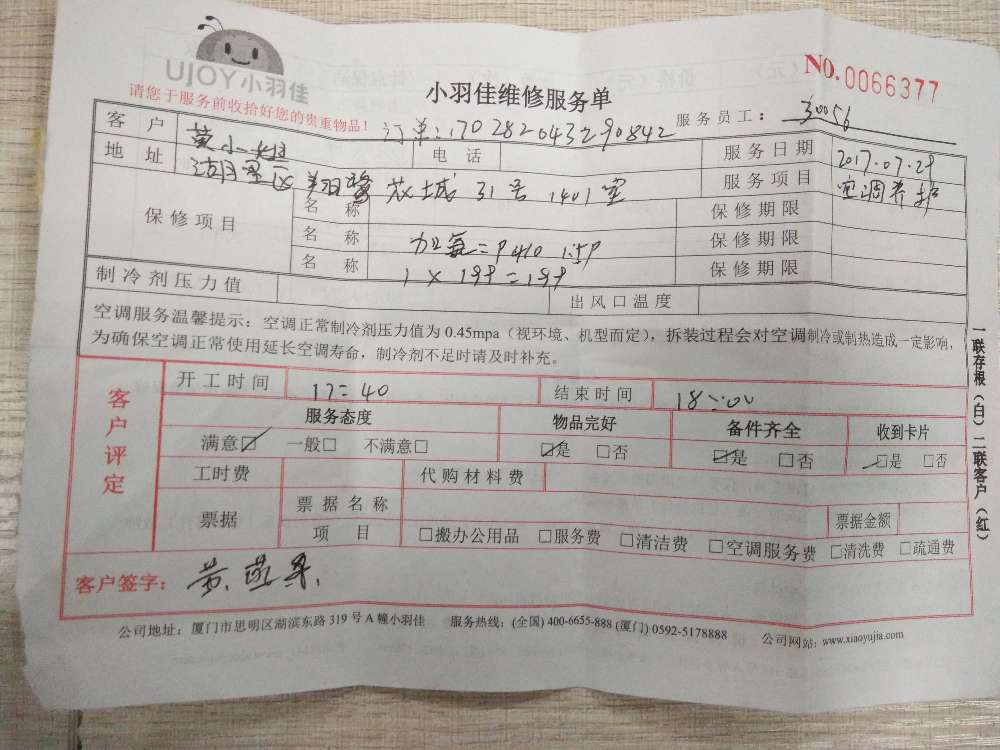 UJOY小羽佳
NO.0066377
小羽佳维修服务单
请您于服务前收拾好您的贵重物品！
订单：170282043290842
服务员工：30056
客户 黄小姐 电话 服务日期 2017.07.29
地址 湖里区 翔鹭花城31号1401室 服务项目 空调养护
保修项目 名称 保修期限
名称 加氟=P410 1.5P 保修期限
名称 1×199=199 保修期限
制冷剂压力值 出风口温度
空调服务温馨提示：空调正常制冷剂压力值为0.45mpa（视环境、机型而定），拆装过程会对空调制冷或制热造成一定影响，
为确保空调正常使用延长空调寿命，制冷剂不足时请及时补充。
客户评定
开工时间 17=40 结束时间 18:00
服务态度 物品完好 备件齐全 收到卡片
满意☑ 一般□ 不满意□ ☑是 □否 ☑是 □否 ☑是 □否
工时费 代购材料费
票据 票据名称 票据金额
项目 □搬办公用品 □服务费 □清洁费 □空调服务费 □清洗费 □疏通费
客户签字：黄
公司地址：厦门市思明区湖滨东路319号A幢小羽佳 服务热线：(全国) 400-6655-888 (厦门) 0592-5178888 公司网站：www.xiaoyujia.com
一联存根（白）二联客户（红）